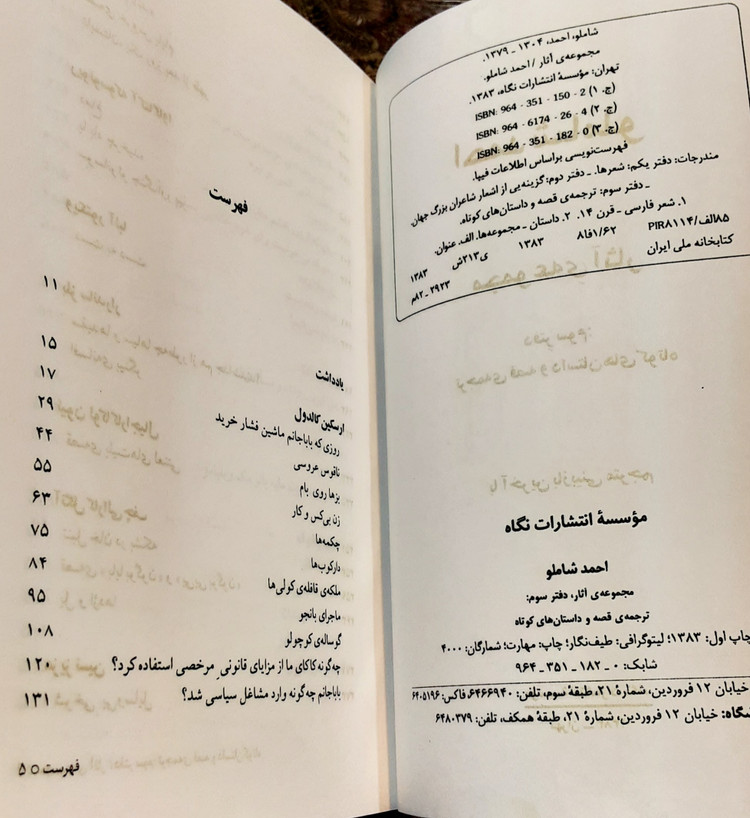 شاملو، احمد، ۱۳۰۴ ـ ۱۳۷۹.
مجموعه‌ی آثار / احمد شاملو.
تهران: مؤسسهٔ انتشارات نگاه، ۱۳۸۳.
ISBN: 964 - 351 - 150 - 2 (ج. ۱)
ISBN: 964 - 6174 - 26 - 4 (ج. ۲)
ISBN: 964 - 351 - 182 - 0 (ج. ۳)
فهرست‌نویسی براساس اطلاعات فیپا.
مندرجات: دفتر یکم: شعرها. ـ دفتر دوم: گزینه‌یی از اشعار شاعران بزرگ جهان.
ـ دفتر سوم: ترجمه‌ی قصه و داستان‌های کوتاه.
۱. شعر فارسی ـ قرن ۱۴. ۲. داستان ـ مجموعه‌ها. الف. عنوان.
۸۵الف/PIR۸۱۱۴ ۸فا۱/۶۲ ۱۳۸۳ ی۲۱۳ش ۱۳۸۳
کتابخانه ملی ایران ۲۹۲۳ ـ ۸۲م
مؤسسهٔ انتشارات نگاه
احمد شاملو
مجموعه‌ی آثار، دفتر سوم:
ترجمه‌ی قصه و داستان‌های کوتاه
چاپ اول: ۱۳۸۳؛ لیتوگرافی: طیف‌نگار؛ چاپ: مهارت؛ شمارگان: ۴۰۰۰
شابک: ۰ ـ ۱۸۲ ـ ۳۵۱ ـ ۹۶۴
خیابان ۱۲ فروردین، شمارهٔ ۲۱، طبقهٔ سوم، تلفن: ۶۴۶۶۹۴۰، فاکس: ۶۴۰۵۱۹۶
خیابان ۱۲ فروردین، شمارهٔ ۲۱، طبقهٔ همکف، تلفن: ۶۴۸۰۳۷۹
فهرست
یادداشت ۱۱
ارسکین کالدول ۱۵
روزی که باباجانم ماشین فشار خرید ۱۷
ناقوس عروسی ۲۹
بزها روی بام ۴۴
زن بی‌کس و کار ۵۵
چکمه‌ها ۶۳
دارکوب‌ها ۷۵
ملکه‌ی قافله‌ی کولی‌ها ۸۴
ماجرای بانجو ۹۵
گوساله‌ی کوچولو ۱۰۸
چه‌گونه کاکای ما از مزایای قانونی مرخصی استفاده کرد؟ ۱۲۰
باباجانم چه‌گونه وارد مشاغل سیاسی شد؟ ۱۳۱
فهرست ○ ۵